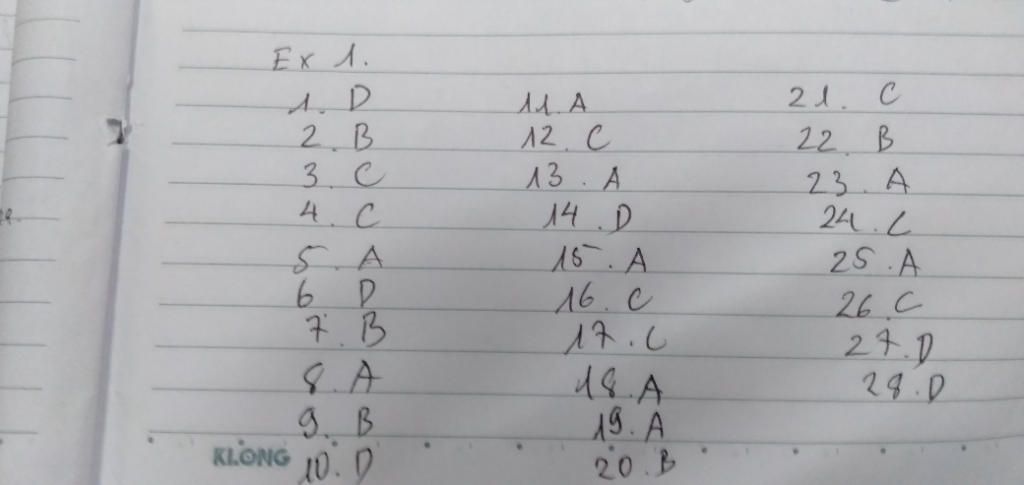 Ex 1.
1. D
2. B
3. C
4. C
5. A
6 D
7. B
8. A
9. B
10. D
11. A
12. C
13. A
14. D
15. A
16. C
17. C
18. A
19. A
20. B
21. C
22. B
23. A
24. C
25. A
26. C
27. D
28. D
KLONG